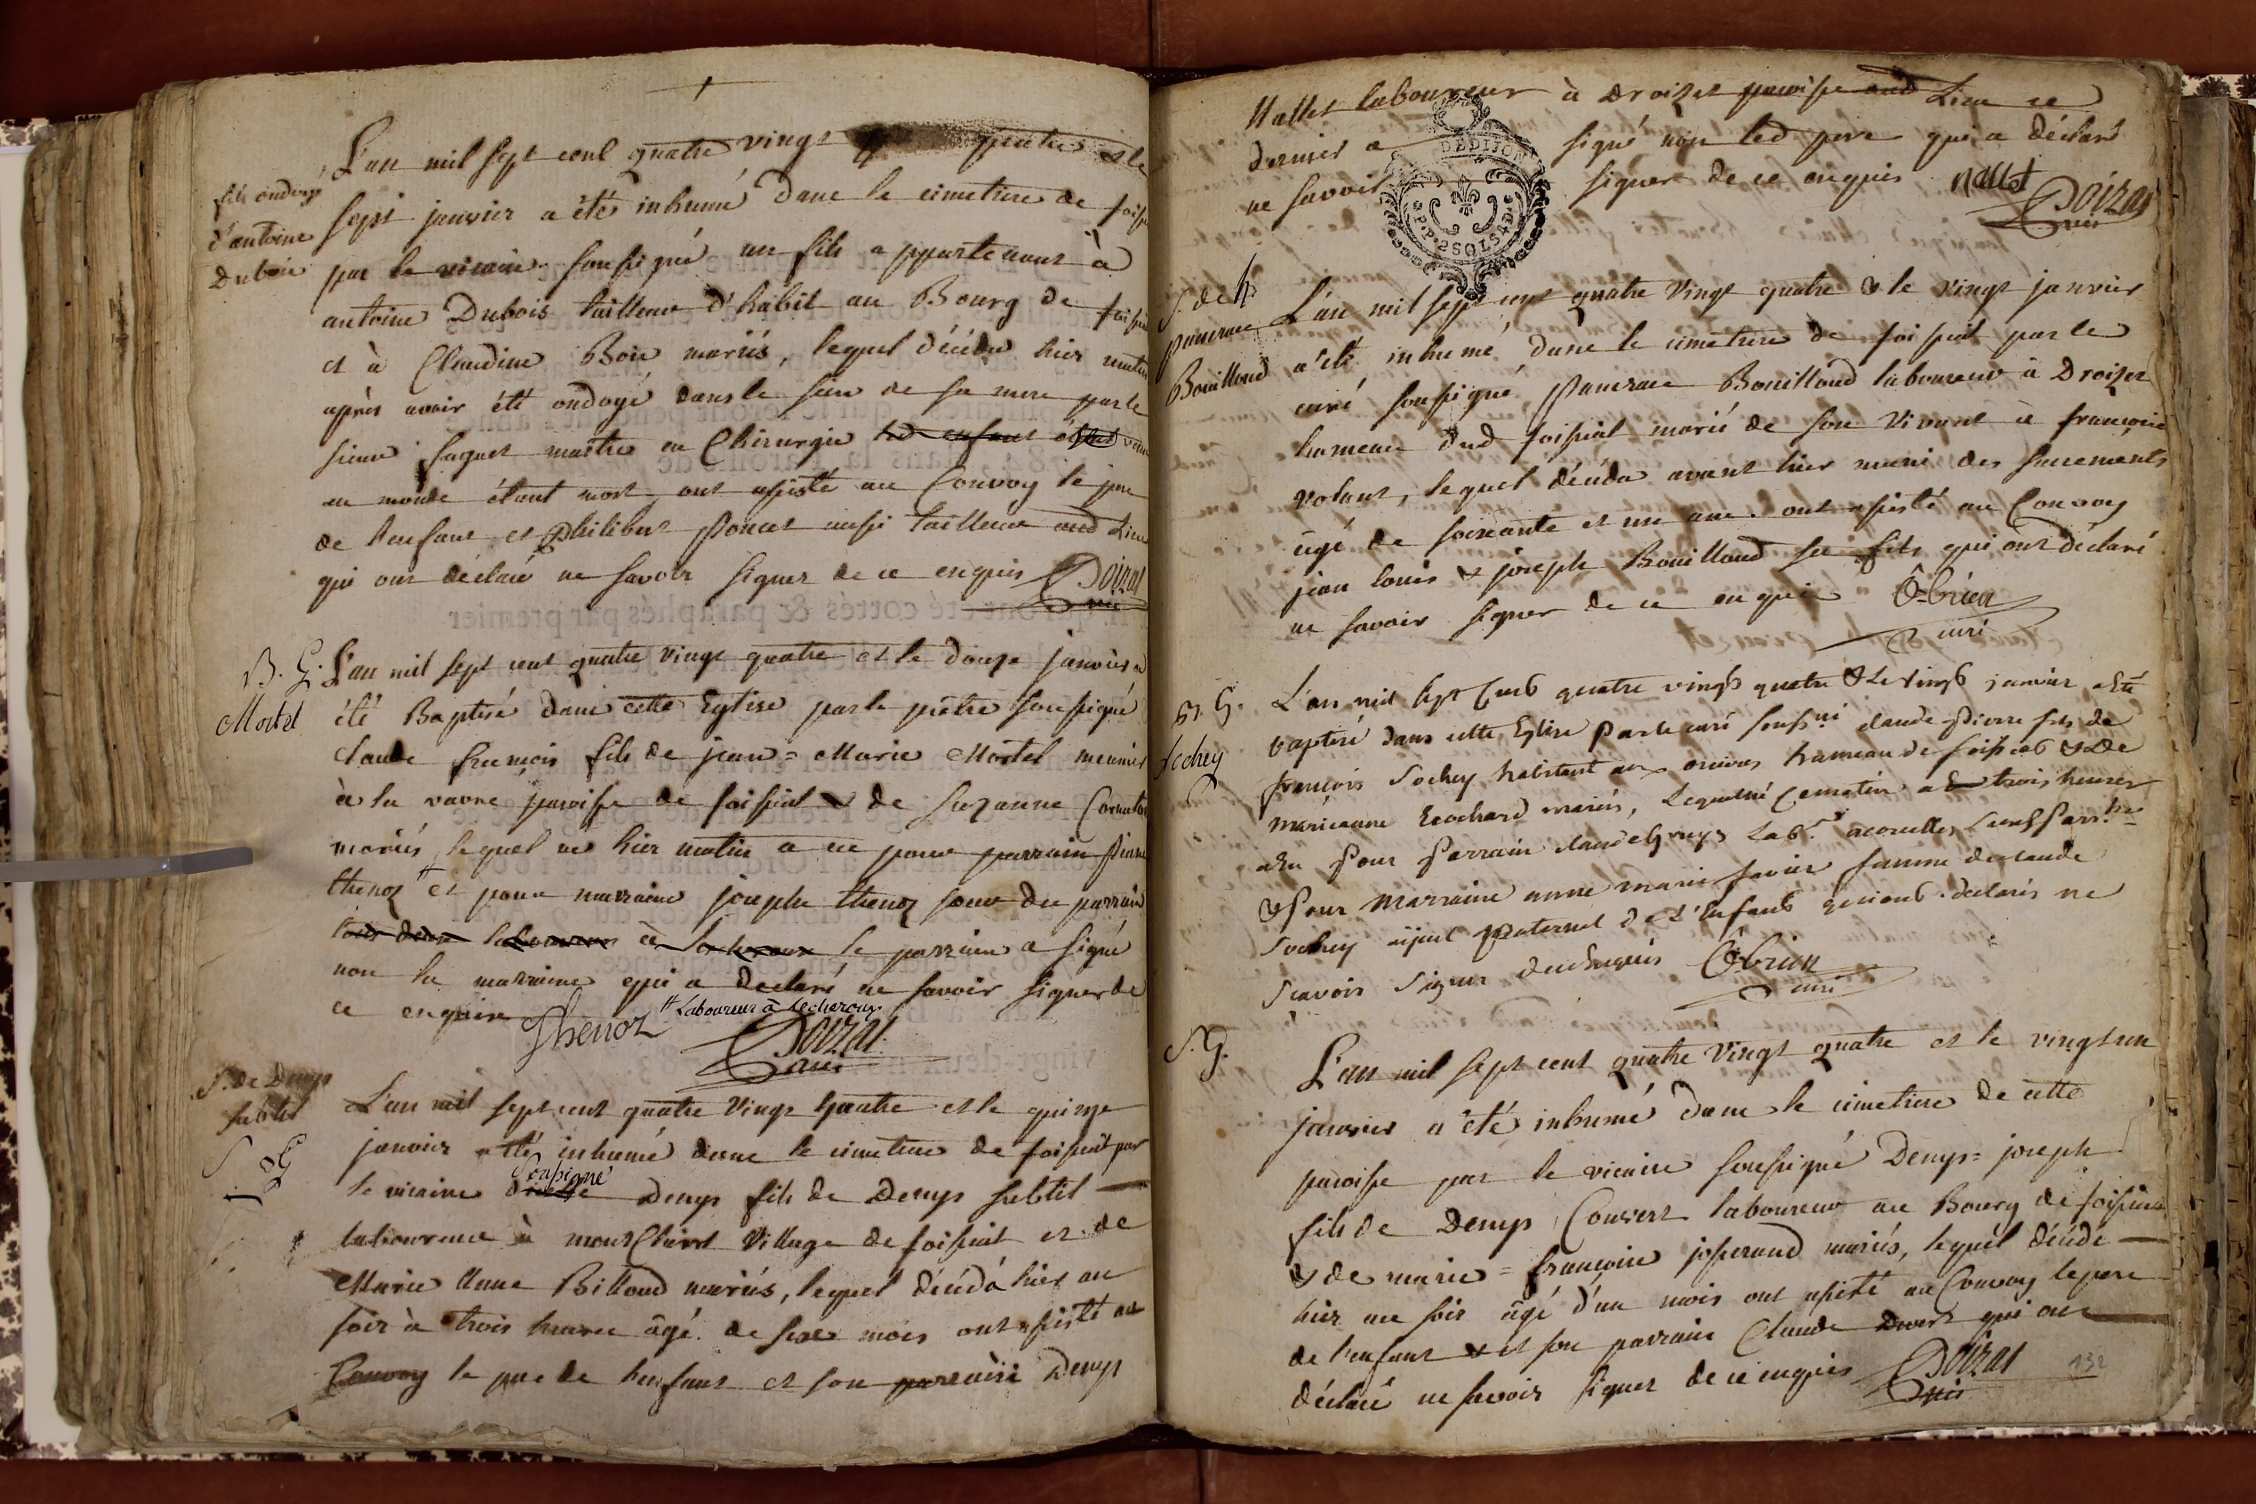 L'an mil sept cent quatre vingt quatre et le
fils ondoyé
d'antoine
Dubois
sept janvier a été inhumé dans le cimetiere de foissia
par le vicaire soussigné un fils appartenant à
antoine Dubois tailleur d'habit au Bourg de foissia
et à Claudine Boin mariés, lequel décéda hier matin
après avoir été ondoyé dans le sein de sa mere par le
sieur saquet maitre en Chirurgie led enfant étant venu
au monde étant mort, ont assisté au Convoy le pere
de l'enfant et Philibert Poncet aussi tailleur aud Lieu
qui ont déclaré ne savoir signer de ce enquis Doizat
vic
B. G.
Mortel
L'an mil sept cent quatre vingt quatre et le douze janvier a
été Baptisé dans cette Eglise par le prêtre soussigné
Claude francois fils de jean=Marie Mortel meunier
à la vavre paroisse de foissiat & de suzanne
mariés, lequel né hier matin a eu pour parrain Pierre
thenoz # et pour marraine josephe thenoz soeur du parrain
tous deux laboureurs à lecheroux le parrain a signé
non la marraine qui a declaré ne savoir signer de
ce enquise
Thenoz # Laboureur à Lecheroux
Doizat
vic
S. de Denys
subtil
S G
L'an mil sept cent quatre vingt quatre et le quinze
janvier a été inhumé dans le cimetiere de foissiat par
le vicaire soussigné Denys fils de Denys subtil
laboureur à village de foissiat et de
Marie Anne Billoud mariés, lequel décéda hier au
soir à trois heures âgé de six mois ont assisté au
Convoy le pere de l'enfant et son parrain Denys
Nallet laboureur à Droizet paroisse aud Lieu ce
dernier a signé non led pere qui a déclaré
ne savoir signer de ce enquis nallet Doizat
vic
DE DIJON
S. de h
pancrace
Bouilloud
L'an mil sept cent quatre vingt quatre & le vingt janvier
a été inhumé dans le cimetiere de foissiat par le
curé soussigné, Pancrace Bouilloud laboureur à Droizet
hameau dud foissiat marié de son vivant à françoise
volant, lequel décéda avant hier muni des sacrements
âgé de soixante et un ans. ont assisté au Convoy
jean louis & joseph Bouilloud ses fils qui ont déclaré
ne savoir signer de ce enquis Ô-brien
curé
B. G.
sochey
L'an mil sept Cent quatre vingt quatre & Le vingt janvier a Eté
baptisé dans cette Eglise Par le curé souss.né claude Pierre fils de
françois Sochey habitant aux hameau de foissiat & de
marieanne Ecochard mariés, Lequel né Ce matin a trois heures
a Eu Pour Parrain Lab.r a cornelles
& Pour Marraine anne marie favier femme de claude
Sochey ayeul paternel de L'Enfant qui ont declarés ne
Scavoir Signer de ce Enquis Ô-brien
curé
S. G.
L'an mil sept cent quatre vingt quatre et le vingt un
janvier a été inhumé dans le cimetiere de cette
paroisse par le vicaire soussigné Denys=joseph
fils de Denys Convert laboureur au Bourg de foissiat
& de marie=françoise josserand mariés, lequel décéda
hier au soir âgé d'un mois ont assisté au Convoy le pere
de l'enfant & et son parrain Claude qui ont
déclaré ne savoir signer de ce enquis Doizat
vic
132